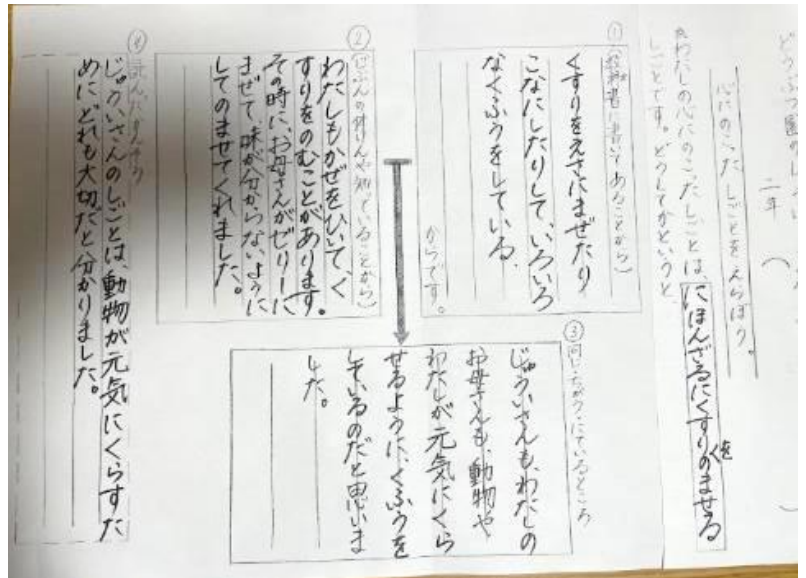 どうぶつ園の
二年 （　　）
心にのこった しごとを えらぼう。
わたしの心にのこったしごとは、にほんざるにくすりをのませる
しごとです。どうしてかというと、
①（教科書に書いてあることから）
くすりをえさにまぜたり
こなにしたりして、いろいろ
なくふうをしている、
からです。
②（じぶんの体けんや知っていることから）
わたしもかぜをひいて、く
すりをのむことがあります。
その時に、お母さんがゼリーに
まぜて、味が分からないように
してのませてくれました。
③同じ・ちがう・にているところ
じゅういさんも、わたしの
お母さんも、動物や
わたしが元気にくら
せるように、くふうを
しているのだと思いま
した。
④読んだかんそう
じゅういさんのしごとは、動物が元気にくらすた
めにどれも大切だと分かりました。